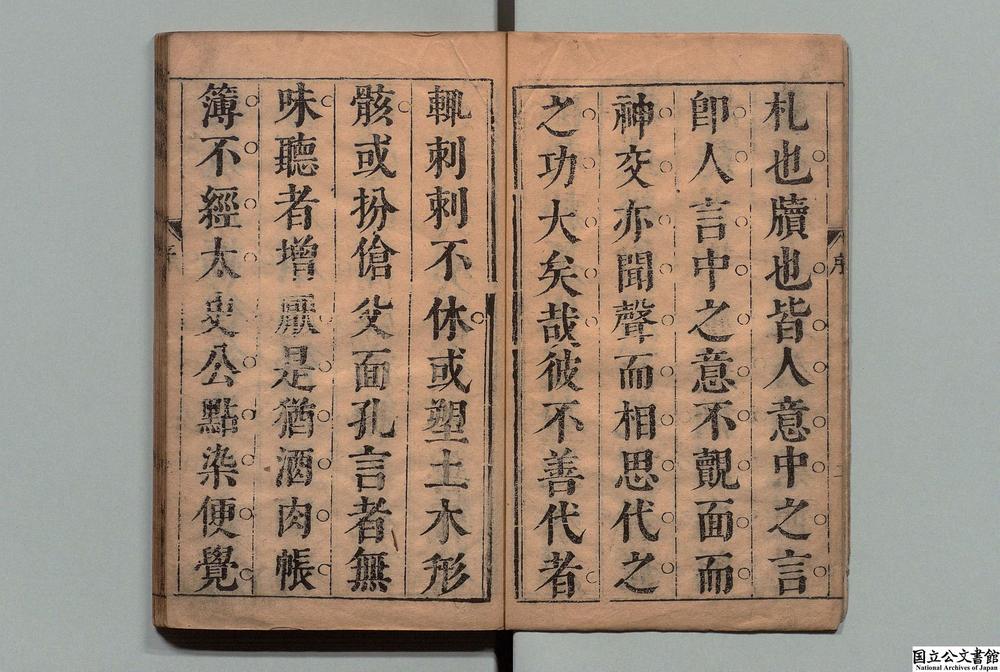 札也牘也皆人意中之言
卽人言中之意不覿面而
神交亦聞聲而相思代之
之功大矣哉彼不善代者
輒刺刺不休或塑土木形
骸或扮傖父面孔言者無
味聽者增厭是猶酒肉帳
簿不經太史公點染便覺
序
国立公文書館
National Archives of Japan